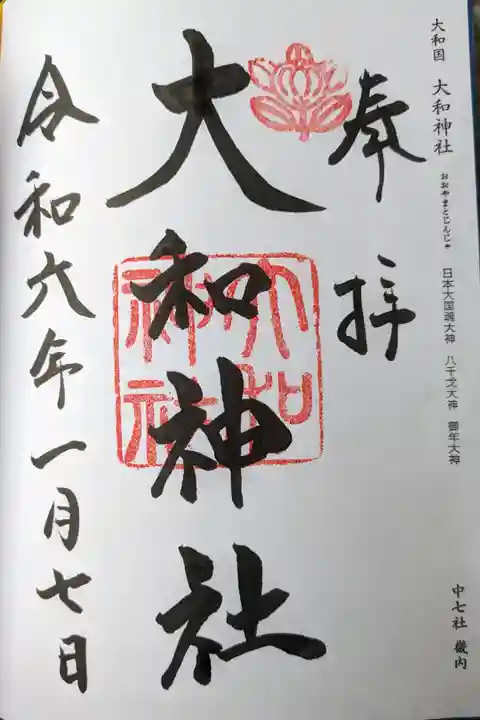 大和国 大和神社 おおやまとじんじゃ 日本大国魂大神 八千戈大神 御年大神
中七社 畿内
奉拝
大和神社
大和神社
令和六年一月七日